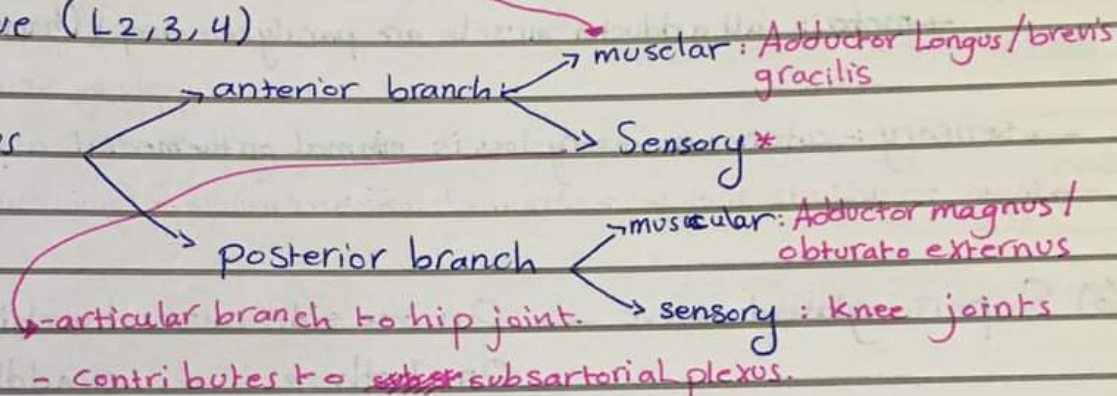 ve (L2,3,4)
musclar: Adductor Longus/brevis
gracilis
anterior branch
Sensory*
muscular: Adductor magnus/
obturato externus
posterior branch
sensory: knee joints
-articular branch to hip joint.
- contributes to subsartorial plexus.